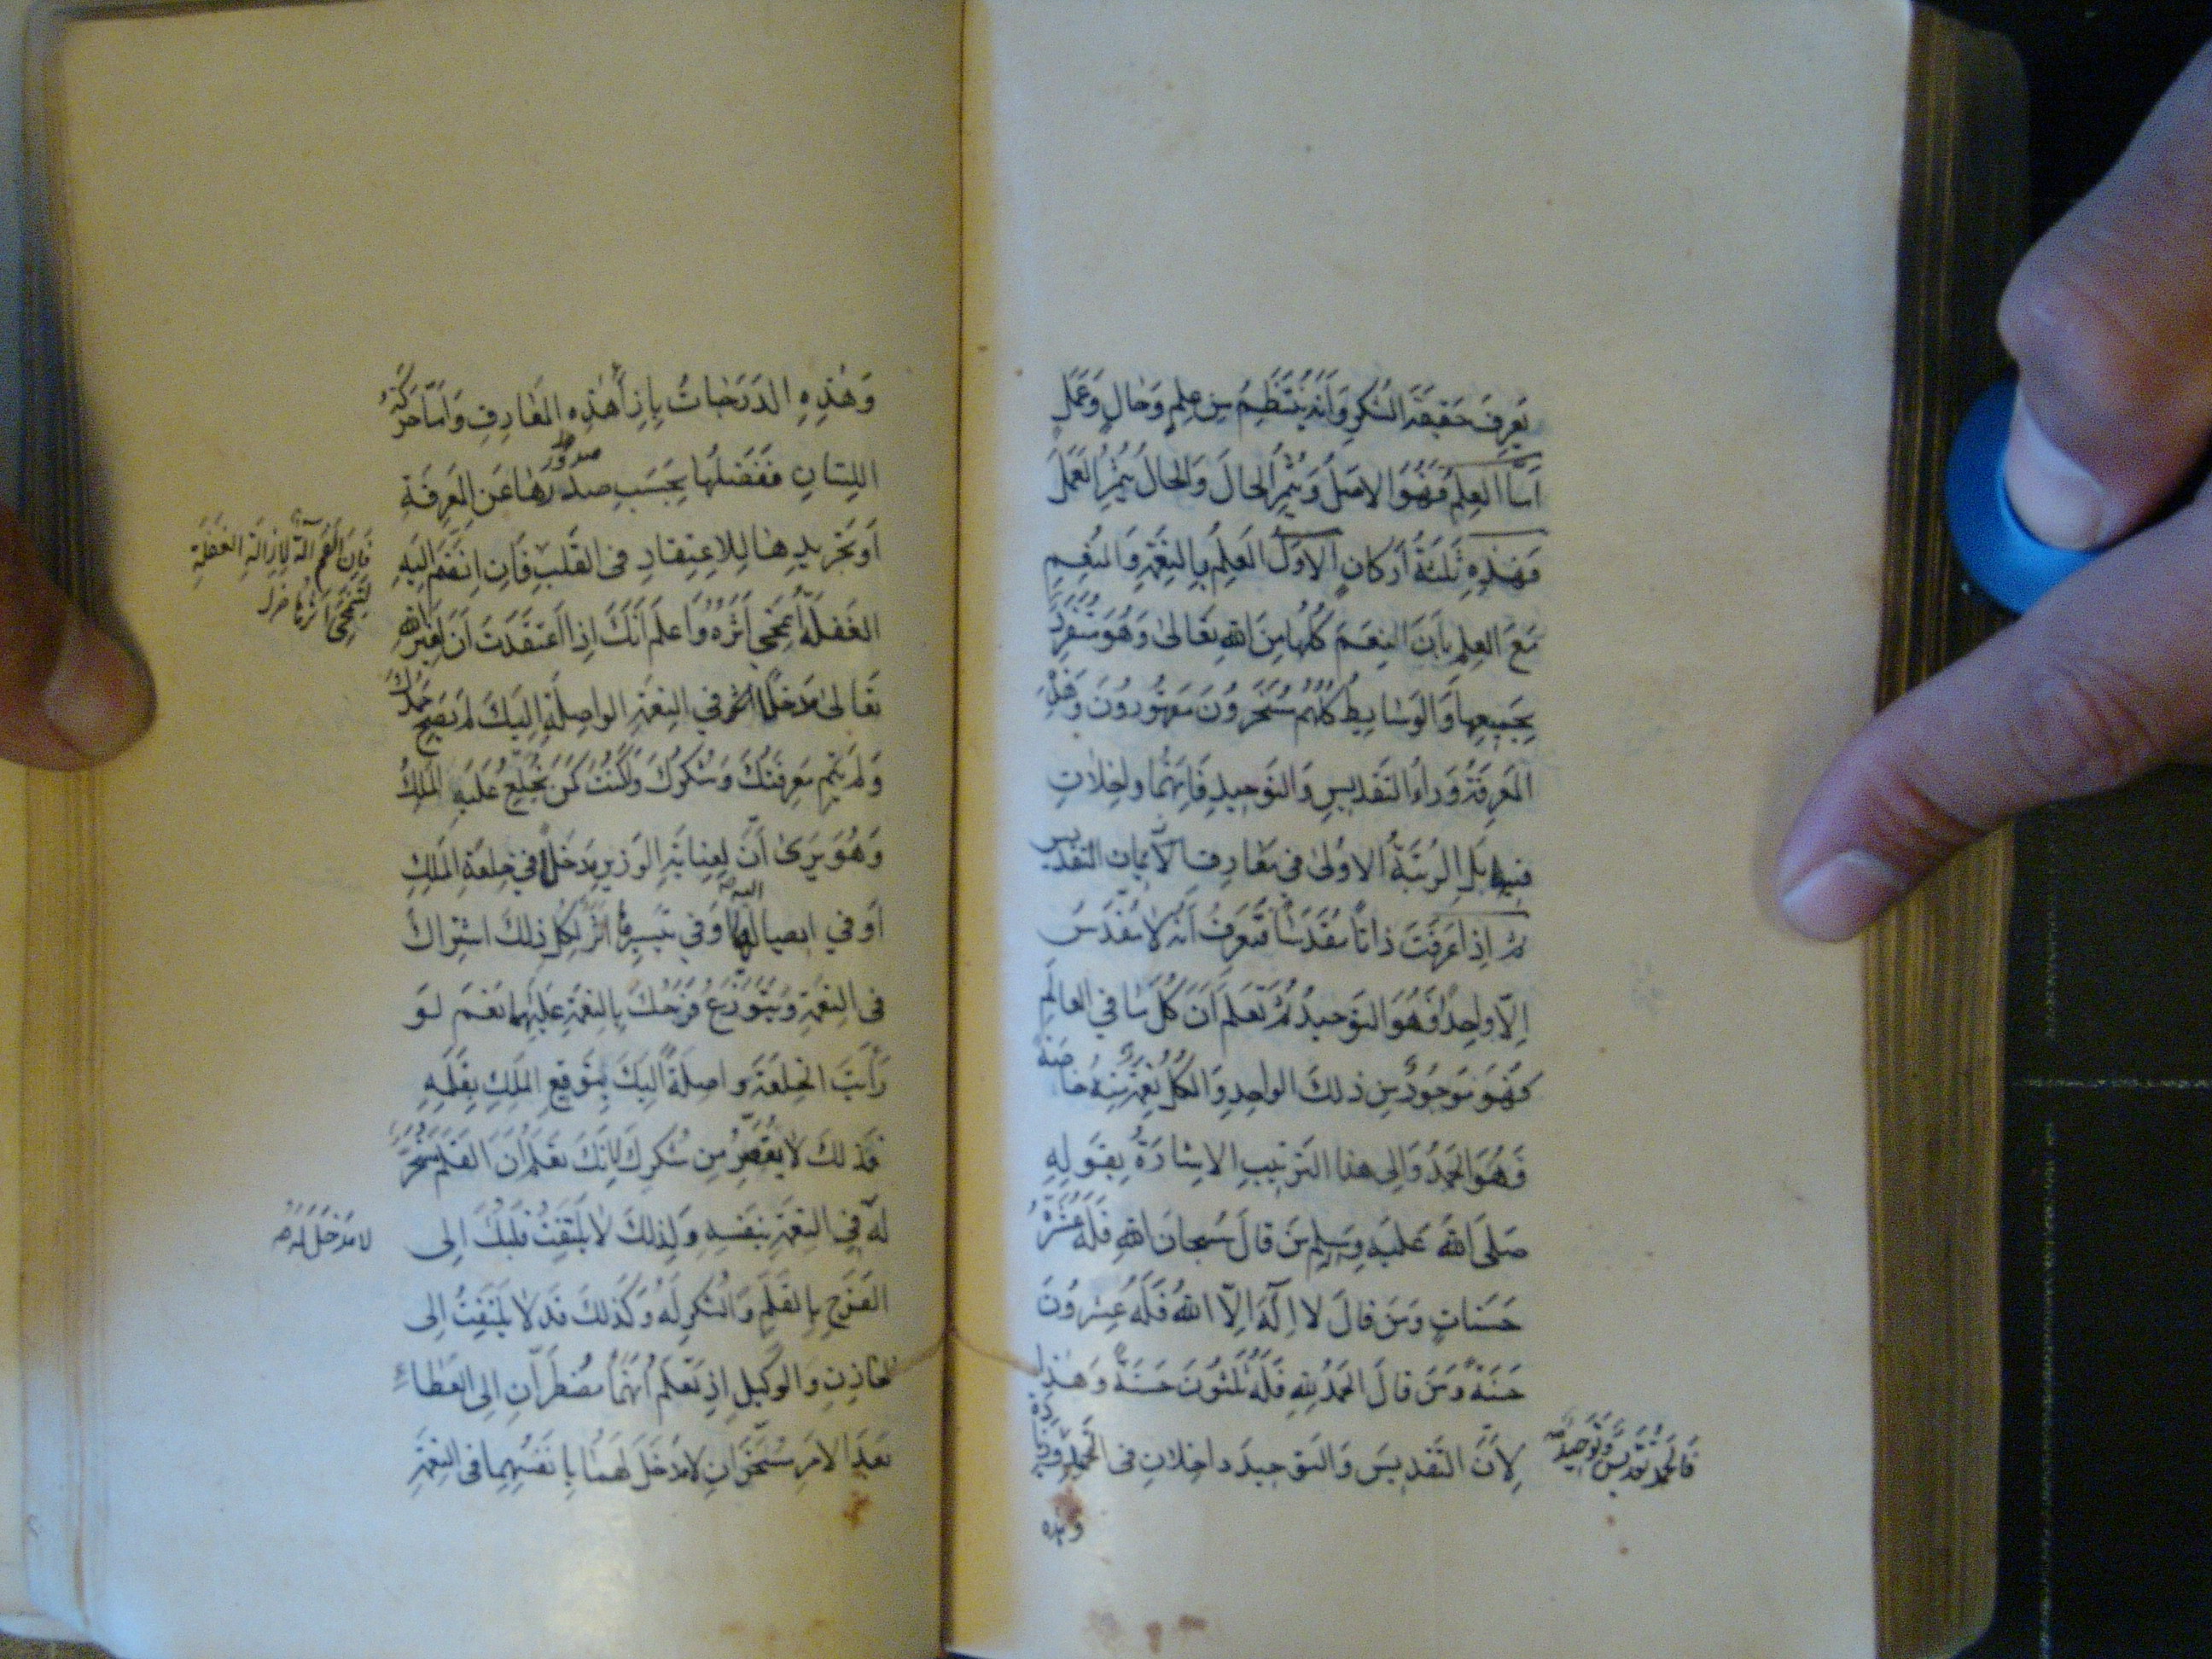 يعرف حقيقة الشكر وانه ينتظم من علم وحال وعمل
اما العلم فهو الاصل ويثمر الحال والحال يثمر العمل
فهذه ثلثة اركان الاول العلم بالنعمة والمنعم
مع العلم بان النعم كلها من الله تعالى وهو متفرد
بجميعها والوسايط كلهم مسخرون مقهورون وهذه
المعرفة وراء التقديس والتوحيد فانهما داخلان
فيها بل الرتبة الاولى في معارف الايمان التقديس
ثم اذا عرفت ذاتا مقدسا فتعرف انه لا مقدس
الا واحد فهو التوحيد ثم تعلم ان كل ما في العالم
فهو موجود من ذلك الواحد والكل نعمة منه خاصة
فهو الحمد والى هذا الترتيب الاشارة بقوله
صلى الله عليه وسلم من قال سبحان الله فله عشرة
حسنات ومن قال لا اله الا الله فله عشرون
حسنة ومن قال الحمد لله فله ثلثون حسنة وهذا
لان التقديس والتوحيد داخلان في الحمد وزيادة
فالحمد تقديس وتوحيد
وهذه
وهذه الدرجات بازاء هذه المعارف واما حركة
اللسان ففضلها بحسب صدورها عن المعرفة
صدور
او تجريدها للاعتقاد في القلب فان انضم اليه
فان الفم آلة لازالة الغفلة
الغفلة امحي اثره واعلم انك اذا اعتقدت ان لغير الله
لينمحي اثرها
تعالى مدخلا في النعمة الواصلة اليك لم يصح حمدك
ولم يتم معرفتك وشكرك وكنت كمن يخلع عليه الملك
وهو يرى ان لعناية الوزير مدخلا في خلعة الملك
اليه
او في ايصالها وفي تيسيرها اثر لكل ذلك اشتراك
في النعمة ويتوزع فرحك بالنعمة عليهما نعم لو
رايت الخلعة واصلة اليك بتوقيع الملك بقلمه
فذلك لا يقصر من شكرك لانك تعلم ان القلم مسخر
له في النعمة بنفسه ولذلك لا يلتفت قلبك الى
لا مدخل له
الفرح بالقلم والشكر له وكذلك قد لا يلتفت الى
الخازن والوكيل اذ تعلم انهما مضطران الى العطاء
بعد الامر مسخران لا مدخل لهما بانفسهما في النعمة